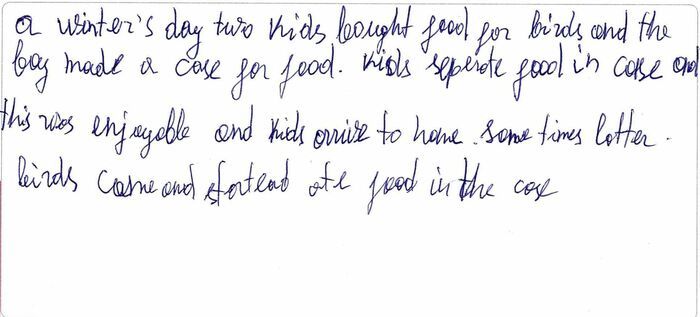 a winter's day two kids bought food for birds and the
boy made a case for food. kids seperate food in case and
this was enjoyable and kids arrive to home. some times latter.
birds came and startead ate food in the case